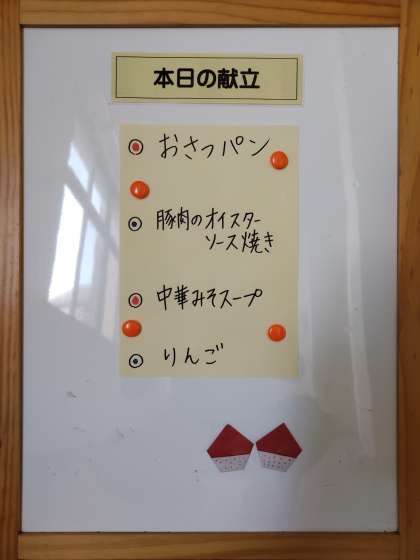 本日の献立
おさつパン
豚肉のオイスター
ソース焼き
中華みそスープ
りんご